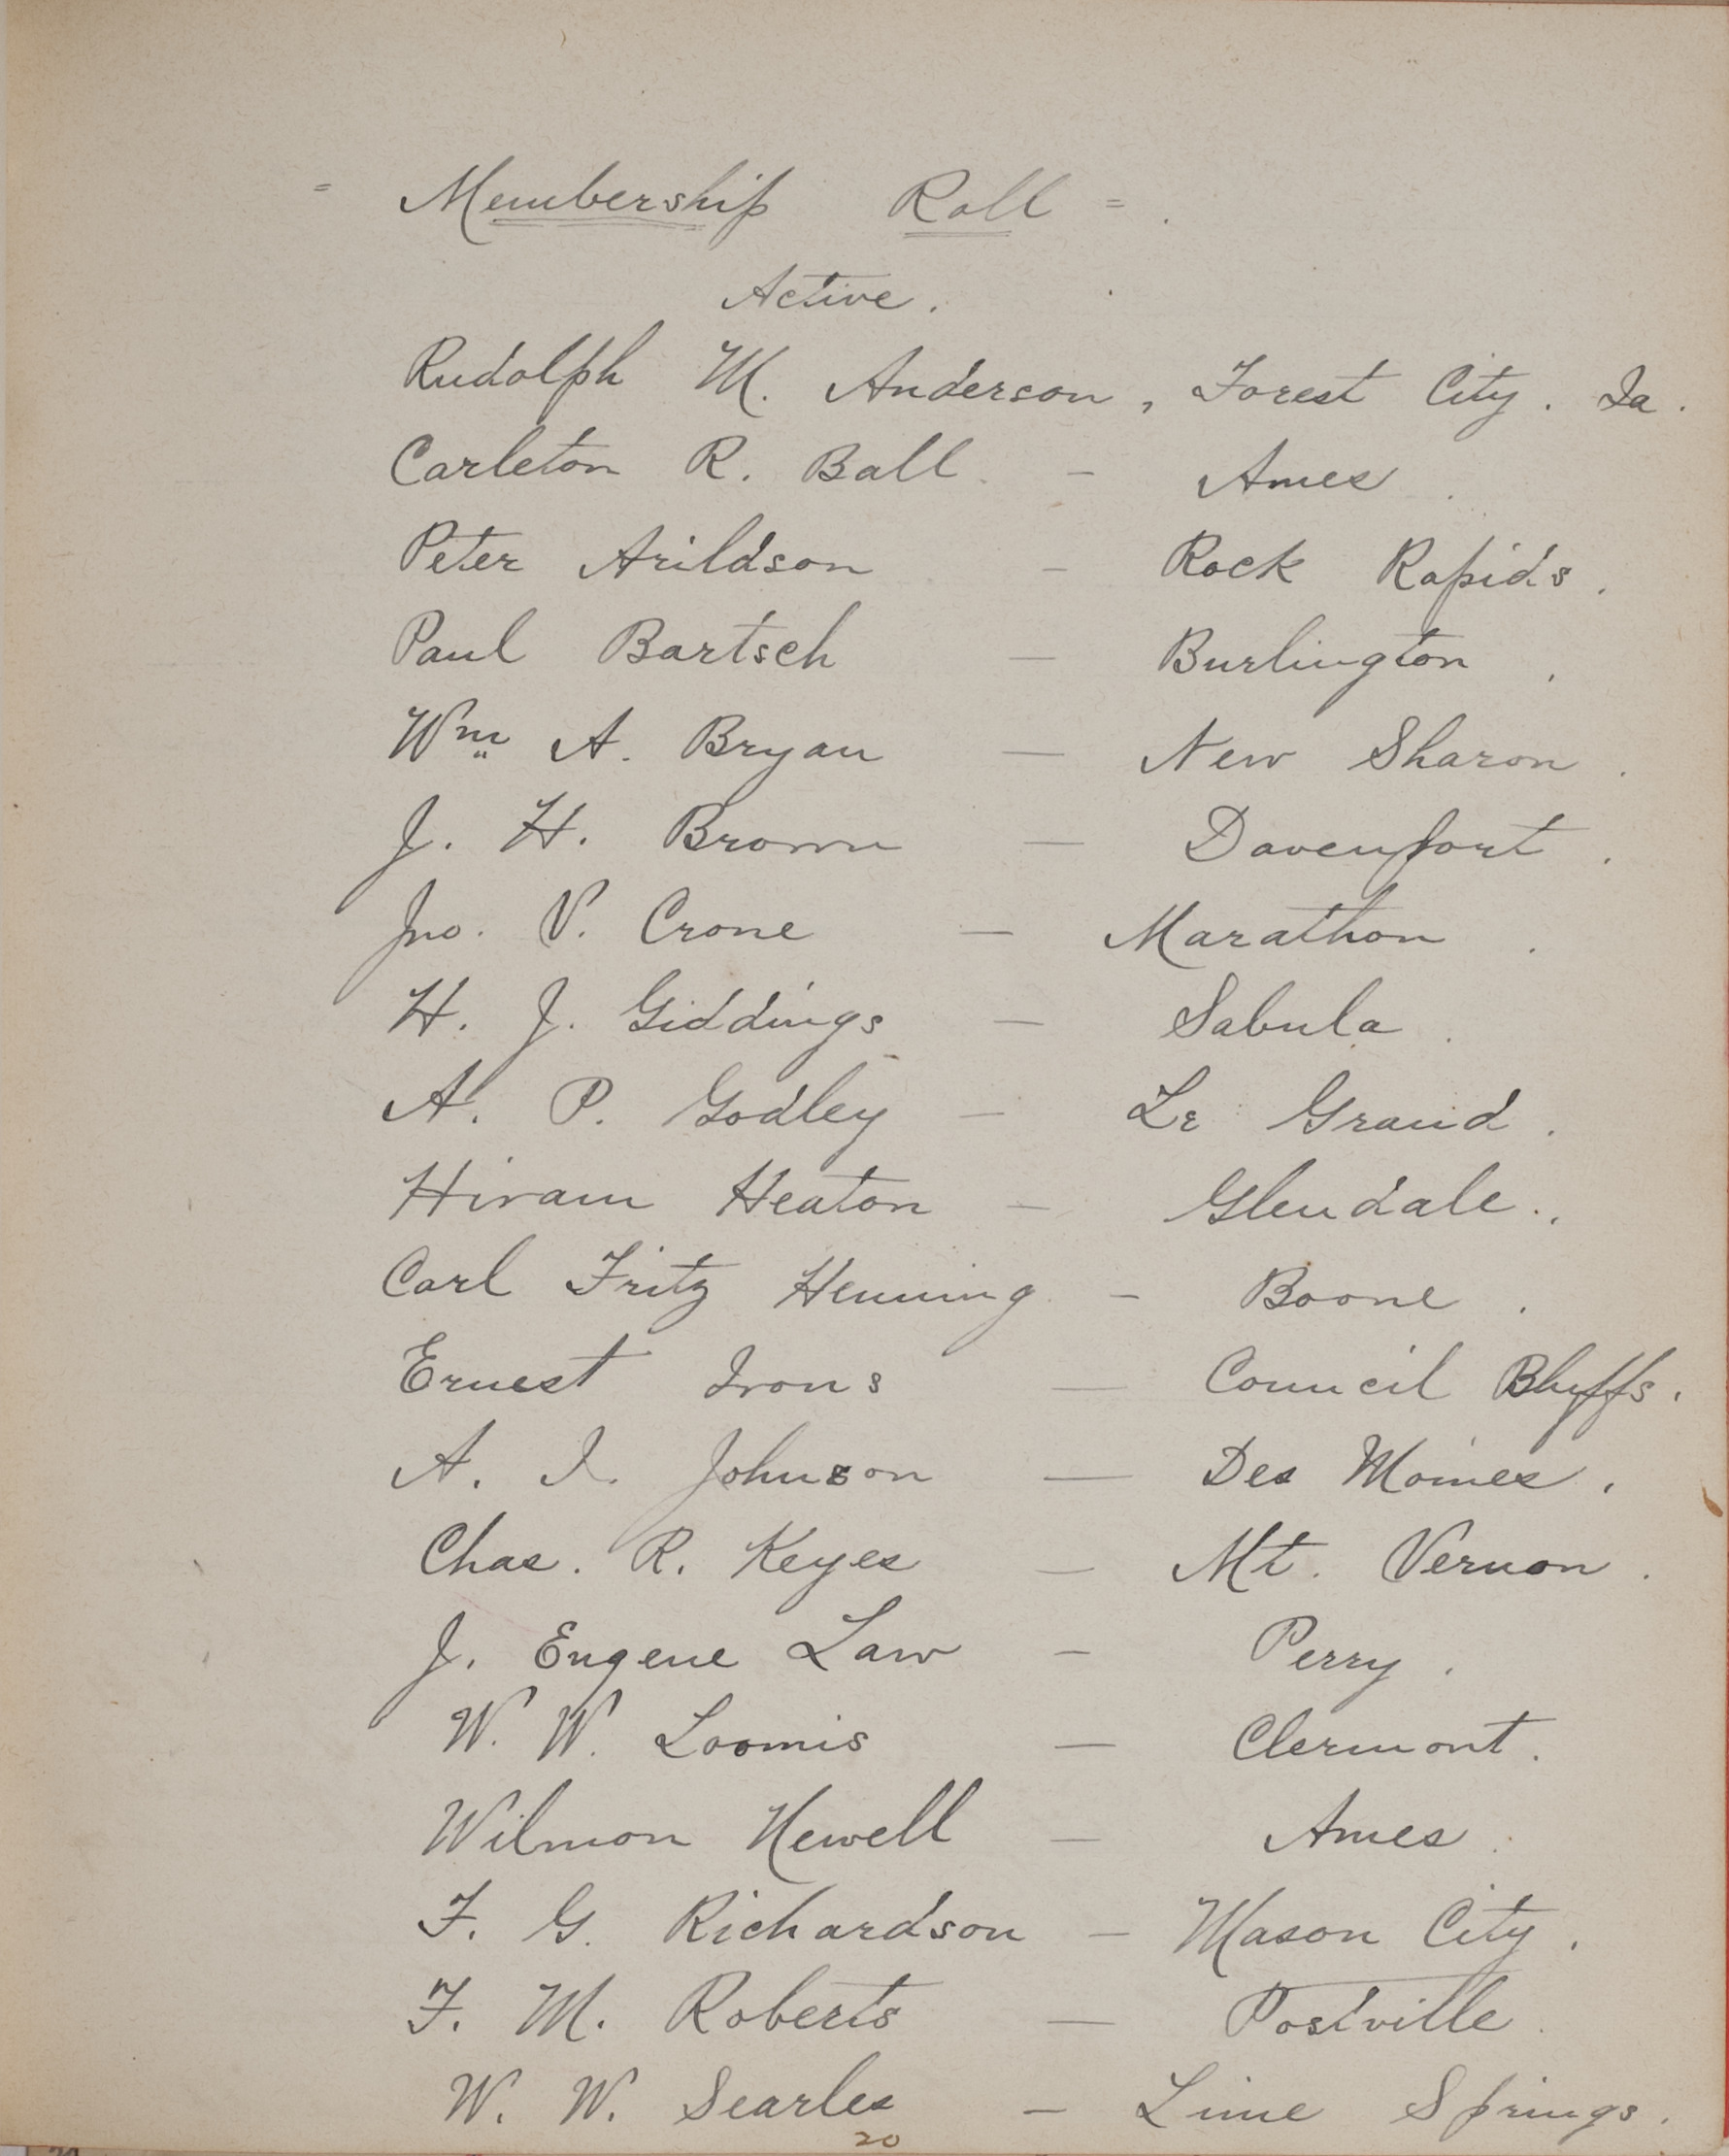 = Membership Roll = .
Active.
Rudolph M. Anderson, Forest City. Ia.
Carleton R. Ball. - Ames.
Peter Arildson - Rock Rapids.
Paul Bartsch - Burlington.
Wm A. Bryan - New Sharon.
J. H. Brown - Davenport.
Jno. V. Crone - Marathon.
H. J. Giddings - Sabula.
A. P. Godley - Le Grand.
Hiram Heaton - Glendale..
Carl Fritz Henning - Boone.
Ernest Irons - Council Bluffs.
A. I. Johnson - Des Moines.
Chas. R. Keyes - Mt. Vernon.
J. Eugene Law - Perry.
W. W. Loomis - Clermont.
Wilmon Newell - Ames.
F. G. Richardson - Mason City.
F. M. Roberts - Postville.
W. W. Searles - Lime Springs.
20